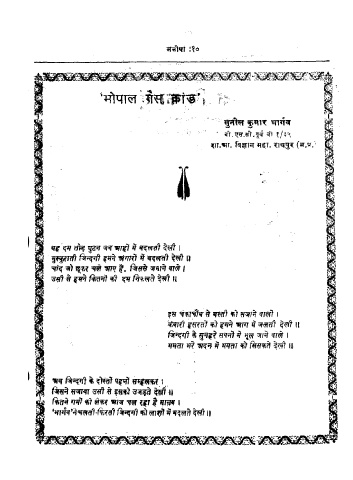 मनीषा :१०
'भोपाल गैस कांड'
सुनील कुमार भार्गव
बी.एस.सी.पूर्व
शा.आ. विज्ञान महा. रायपुर (म.प्र.)
यह दम तोड़ घुटन जब आहों में बदलती देखी।
मुस्कुराती जिन्दगी हमने अंगारों में बदलती देखी॥
चांद जो छूकर चले आए हैं, जिससे जमाने वाले।
उसी से हमने कितनों की दम निकलते देखी॥
इस चकाचौंध से बस्ती को सजाने वालो।
हसरतों को हमने आग में जलती देखी॥
जिन्दगी के सुनहरे सपनों में भूल जाने वाले।
ममता भरे अदन में ममता को सिसकते देखी॥
अब जिन्दगी के दोस्तों पहनो सम्हलकर।
जिसने सजाया उसी से इसको उजड़ते देखी॥
कितने गमों को लेकर आज चल रहा है मानव।
'भार्गव' ने चलती-फिरती जिन्दगी को लाशों में बदलते देखी॥